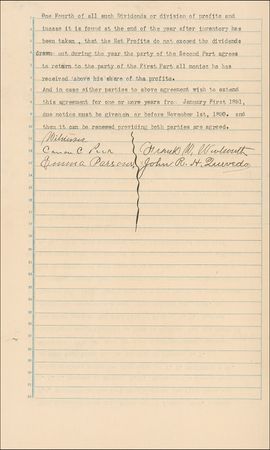 One Fourth of all such Dividends or division of profits and
incase it is found at the end of the year after inventory has
been taken, that the Net Profits do not exceed the dividends
drawn out during the year the party of the Second Part agrees
to return to the party of the First Part all monies he has
received above his share of the profits.
And in case either parties to above agreement wish to extend
this agreement for one or more years from January First 1891,
due notice must be given on or before November 1st, 1890. and
then it can be renewed providing both parties are agreed.
Witnesses
Carson C. Peck Frank W. Woolworth
Emma Parsons John R. H. Quevedo